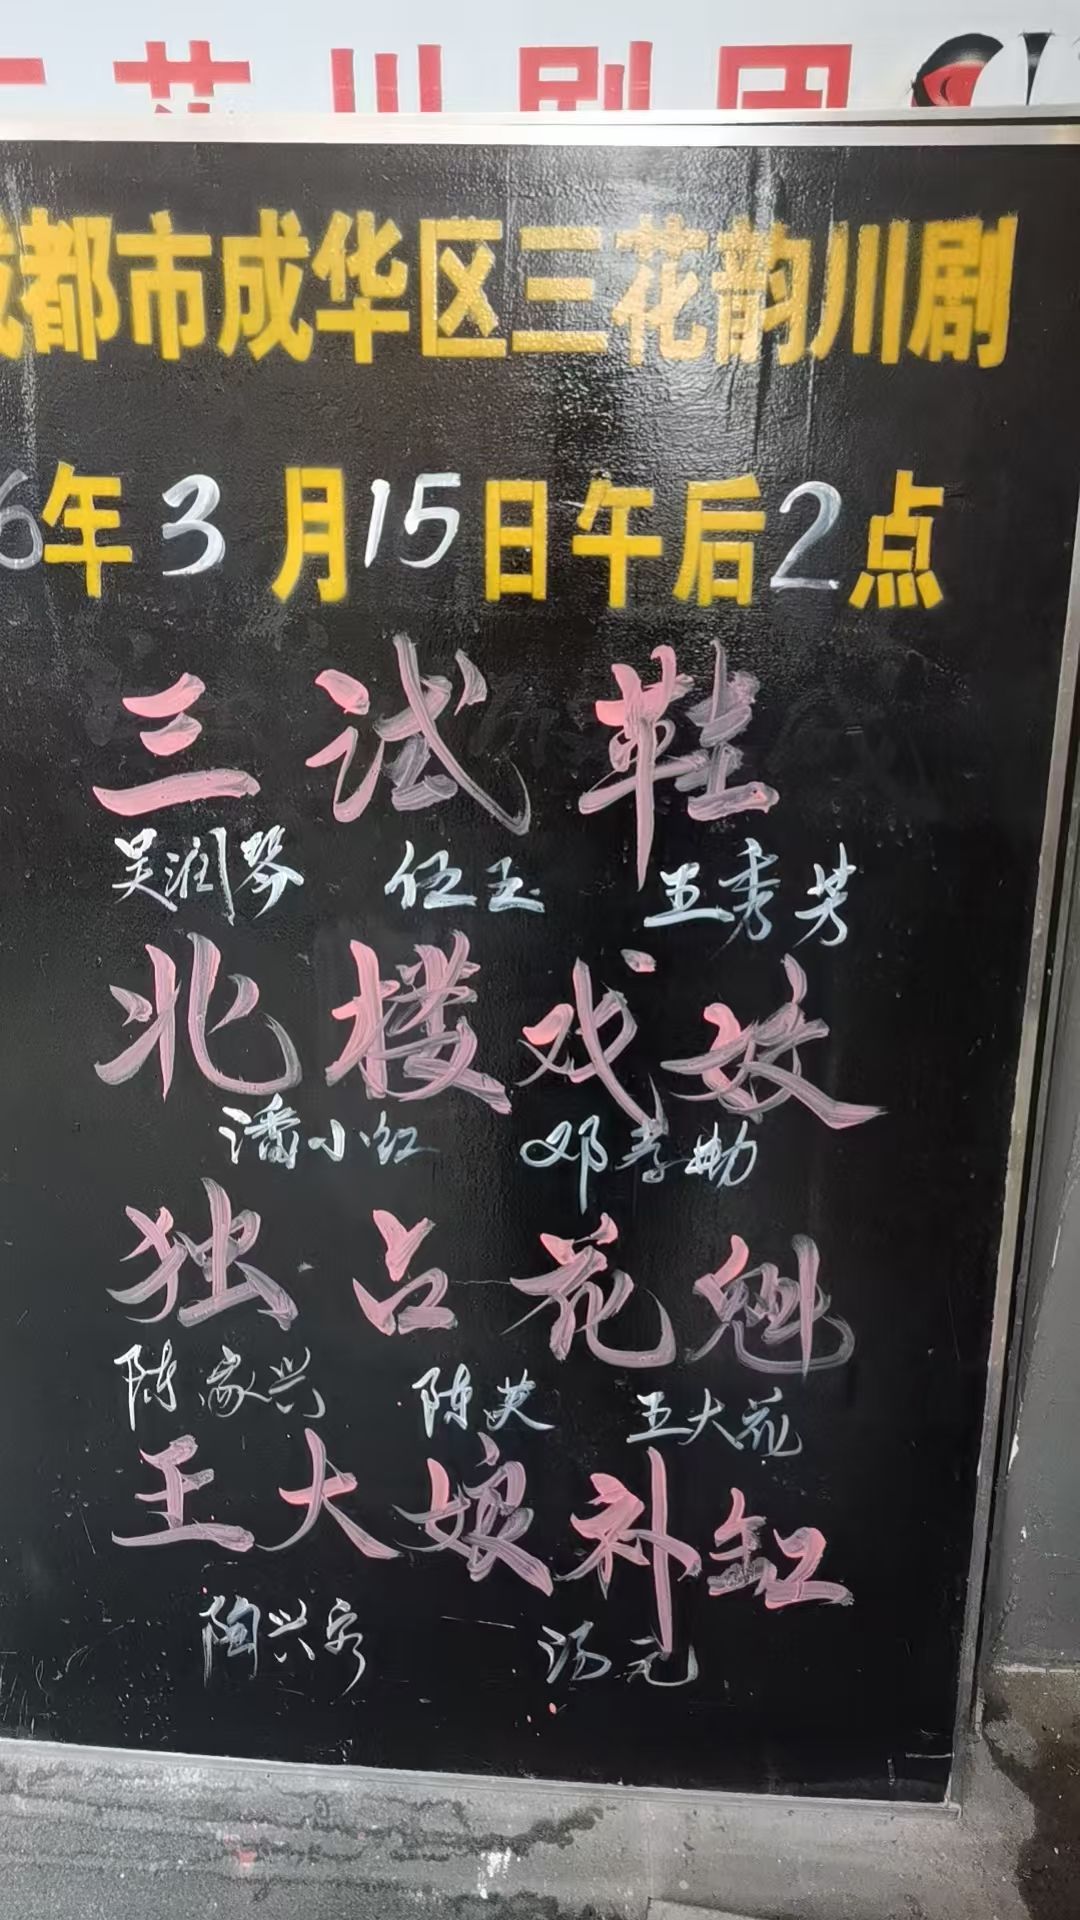 三花川剧团
成都市成华区三花韵川剧
6年3月15日午后2点
三试鞋
吴润琴 伍玉 王秀芳
北楼戏妓
潘小红 邓孝勤
独占花魁
陈家兴 陈英 王大花
王大娘补缸
陶兴容 汤元